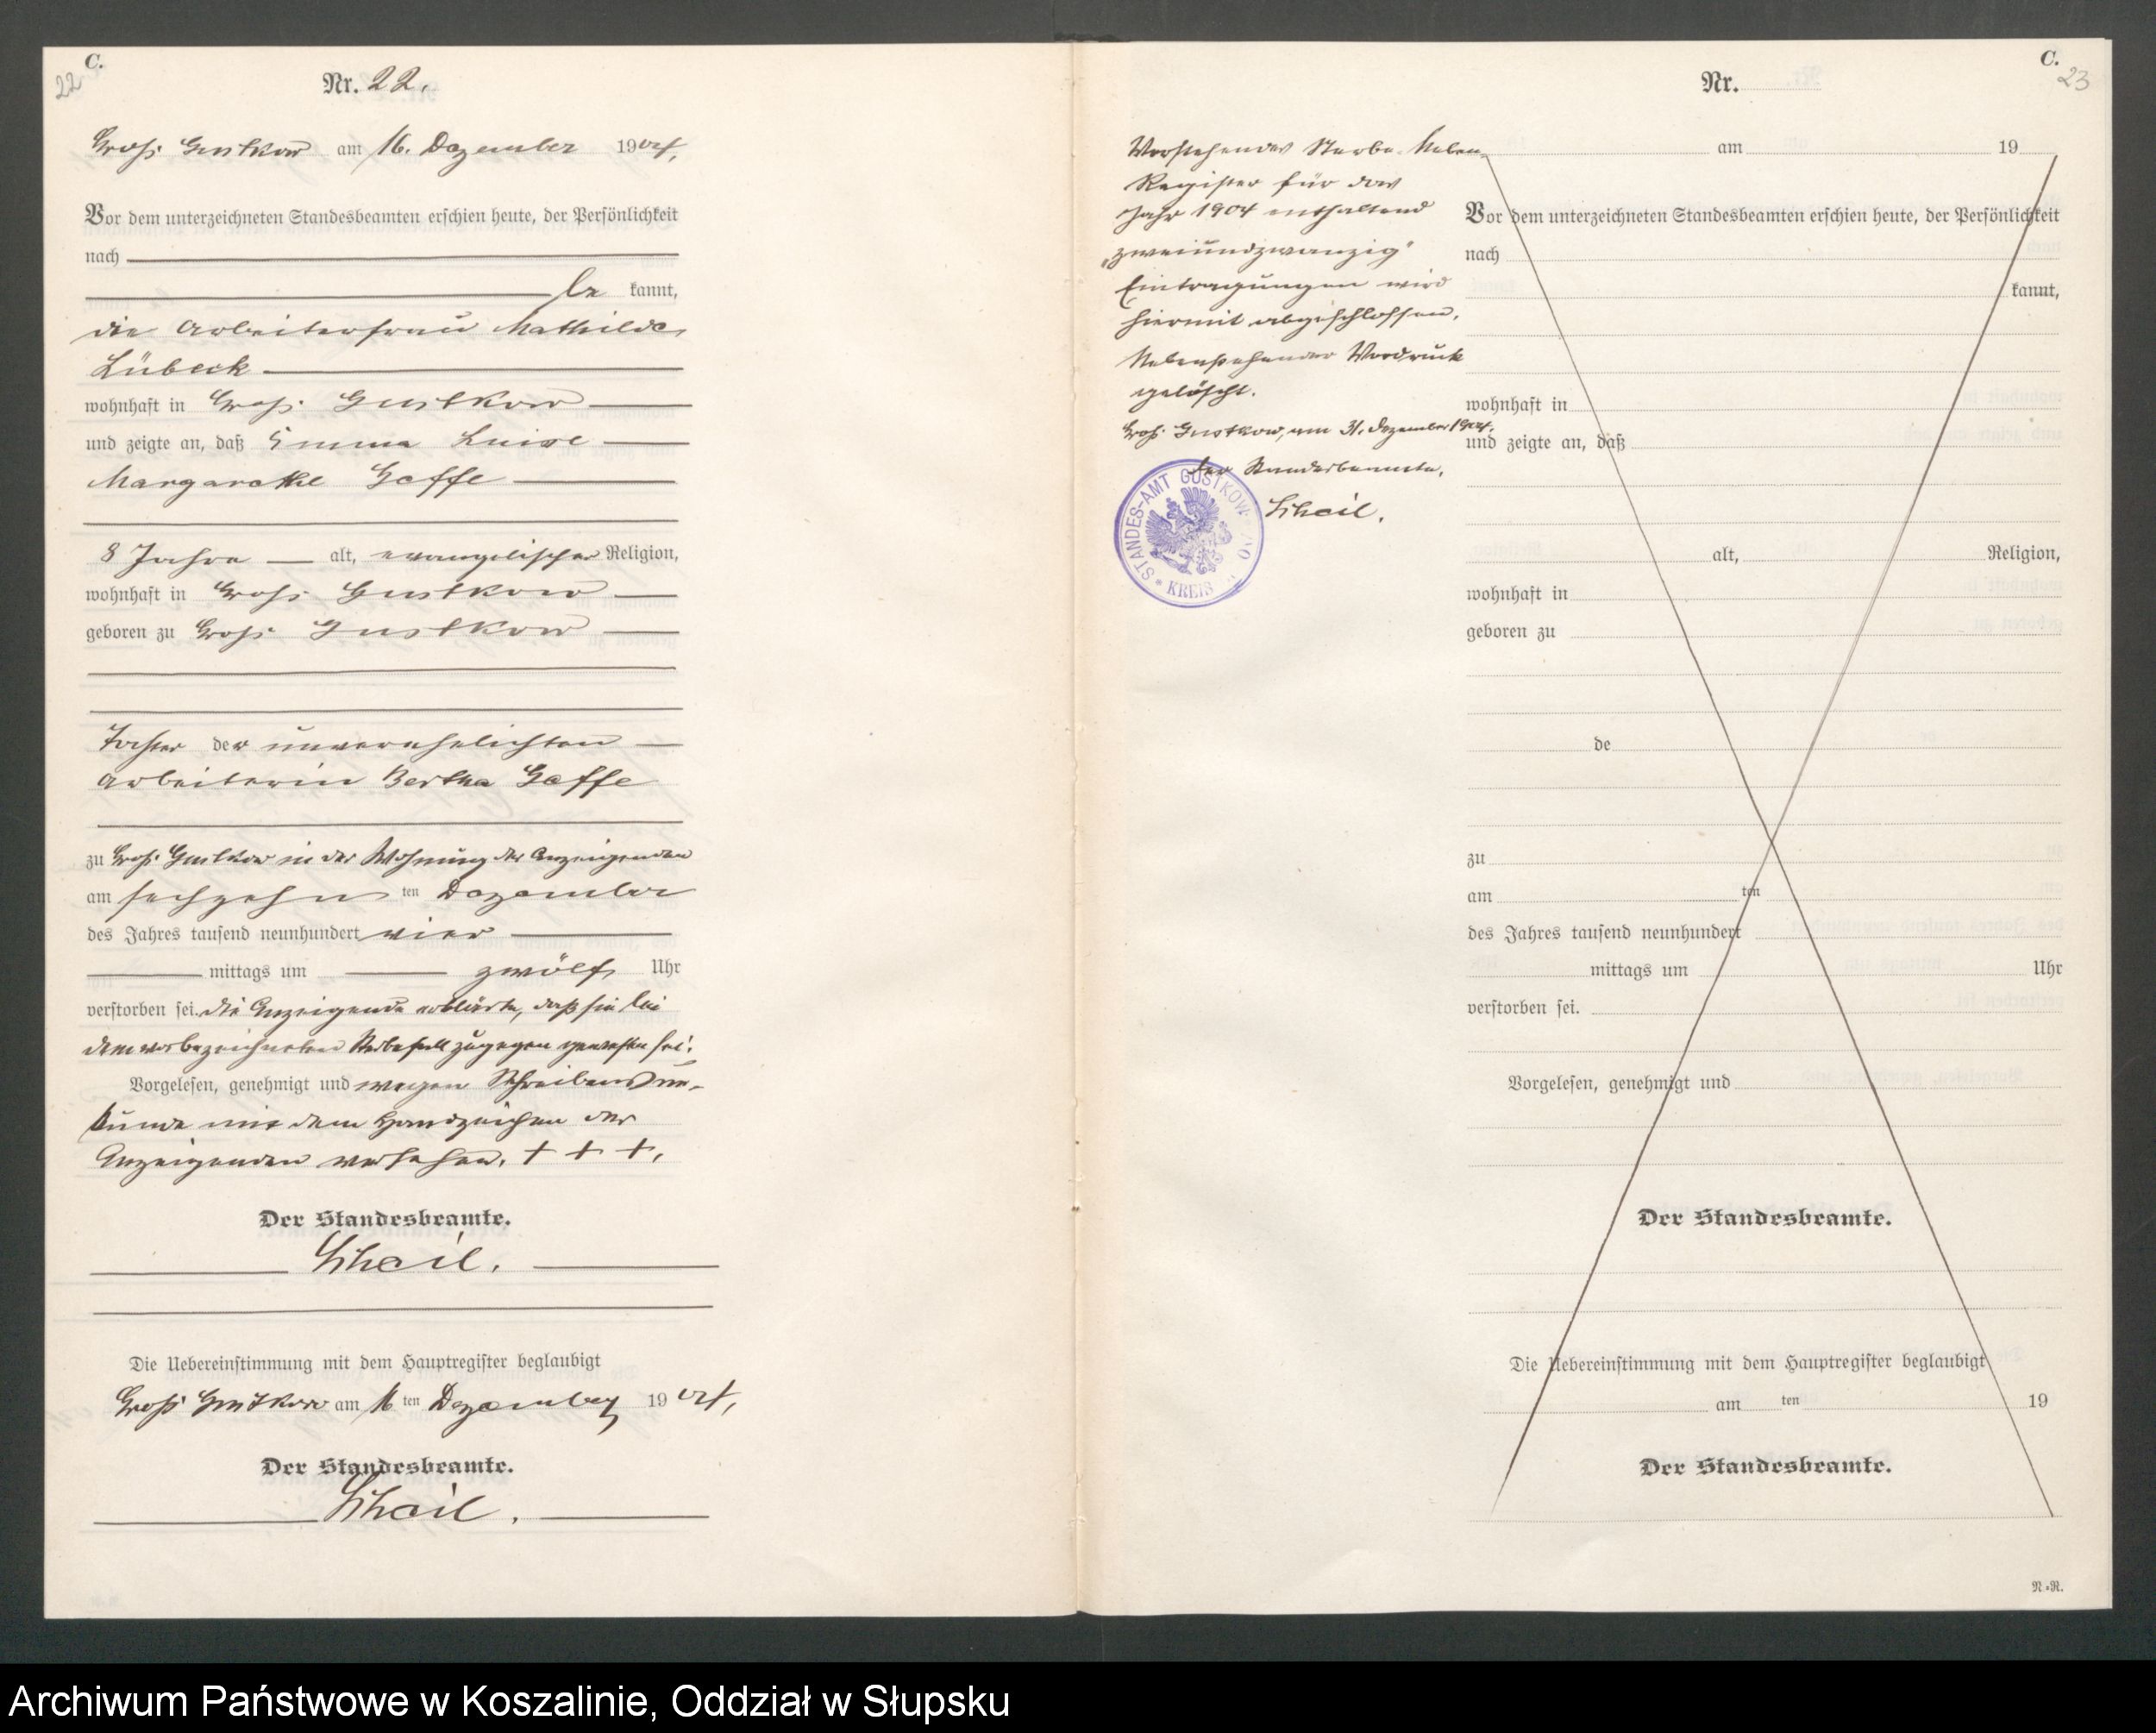 C.
22
Nr. 22.
Groß Gustkow am 16. Dezember 1904.
Vor dem unterzeichneten Standesbeamten erschien heute, der Persönlichkeit
nach
be kannt,
die Arbeiterfrau Mathilde
Lübeck
wohnhaft in Groß Gustkow
und zeigte an, daß Emma Luise
Margarethe Goffe
8 Jahre alt, evangelischer Religion,
wohnhaft in Groß Gustkow
geboren zu Groß Gustkow
Tochter der unverehelichten
Arbeiterin Bertha Goffe
zu Groß Gustkow in der Wohnung der Anzeigenden
am sechzehn ten Dezember
des Jahres tausend neunhundert vier
mittags um zwölf Uhr
verstorben sei. Die Anzeigende erklärte, daß sie bei
dem vorbezeichneten Sterbefall zugegen gewesen sei.
Vorgelesen, genehmigt und wegen Schreibensun-
kunde mit dem Handzeichen der
Anzeigenden versehen. + + +.
Der Standesbeamte.
Scheil.
Die Uebereinstimmung mit dem Hauptregister beglaubigt
Groß Gustkow am 16 ten Dezember 1904.
Der Standesbeamte.
Scheil.
C.
23
Nr.
Vorstehendes Sterbe-Neben-
Register für das
Jahr 1904 enthaltend
„zweiundzwanzig"
Eintragungen wird
hiermit abgeschlossen.
Nebenstehender Vordruck
gelöscht.
Groß Gustkow, am 31. Dezember 1904.
Der Standesbeamte.
Scheil.
STANDES-AMT GUSTKOW
* KREIS
am 19
Vor dem unterzeichneten Standesbeamten erschien heute, der Persönlichkeit
nach
kannt,
wohnhaft in
und zeigte an, daß
alt, Religion,
wohnhaft in
geboren zu
de
zu
am ten
des Jahres tausend neunhundert
mittags um Uhr
verstorben sei.
Vorgelesen, genehmigt und
Der Standesbeamte.
Die Uebereinstimmung mit dem Hauptregister beglaubigt
am ten 19
Der Standesbeamte.
N.=R.
Archiwum Państwowe w Koszalinie, Oddział w Słupsku